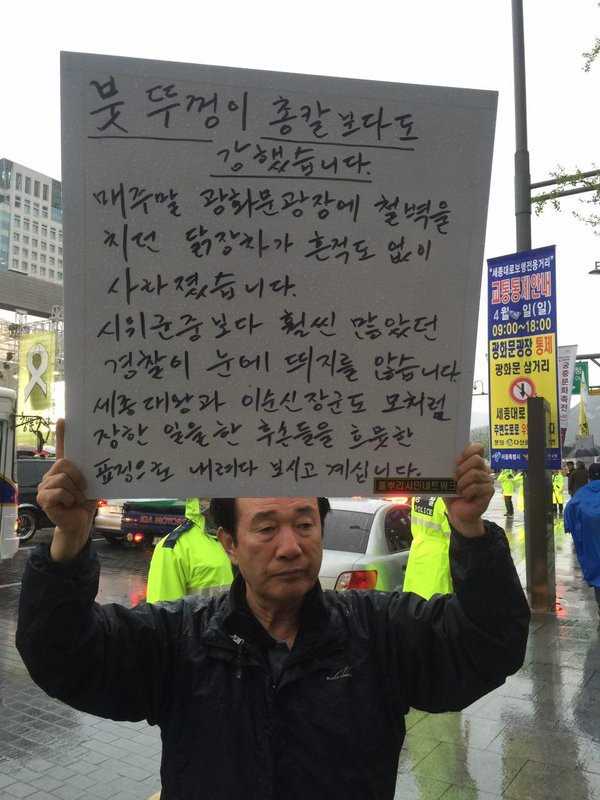 붓 뚜껑이 총칼보다도
강했습니다.
매주말 광화문광장에 철벽을
치던 닭장차가 흔적도 없이
사라졌습니다.
시위군중보다 훨씬 많았던
경찰이 눈에 띄지를 않습니다.
세종대왕과 이순신장군도 모처럼
장한 일을한 후손들을 흐뭇한
표정으로 내려다 보시고 계십니다.
풀뿌리시민네트워크
"세종대로보행전용거리"
교통통제안내
4월 일(일)
09:00~18:00
광화문광장 통제
광화문 삼거리
세종대로
주변도로로
서울특별시
궁중문화축전
POLICE
KIA MOTORS